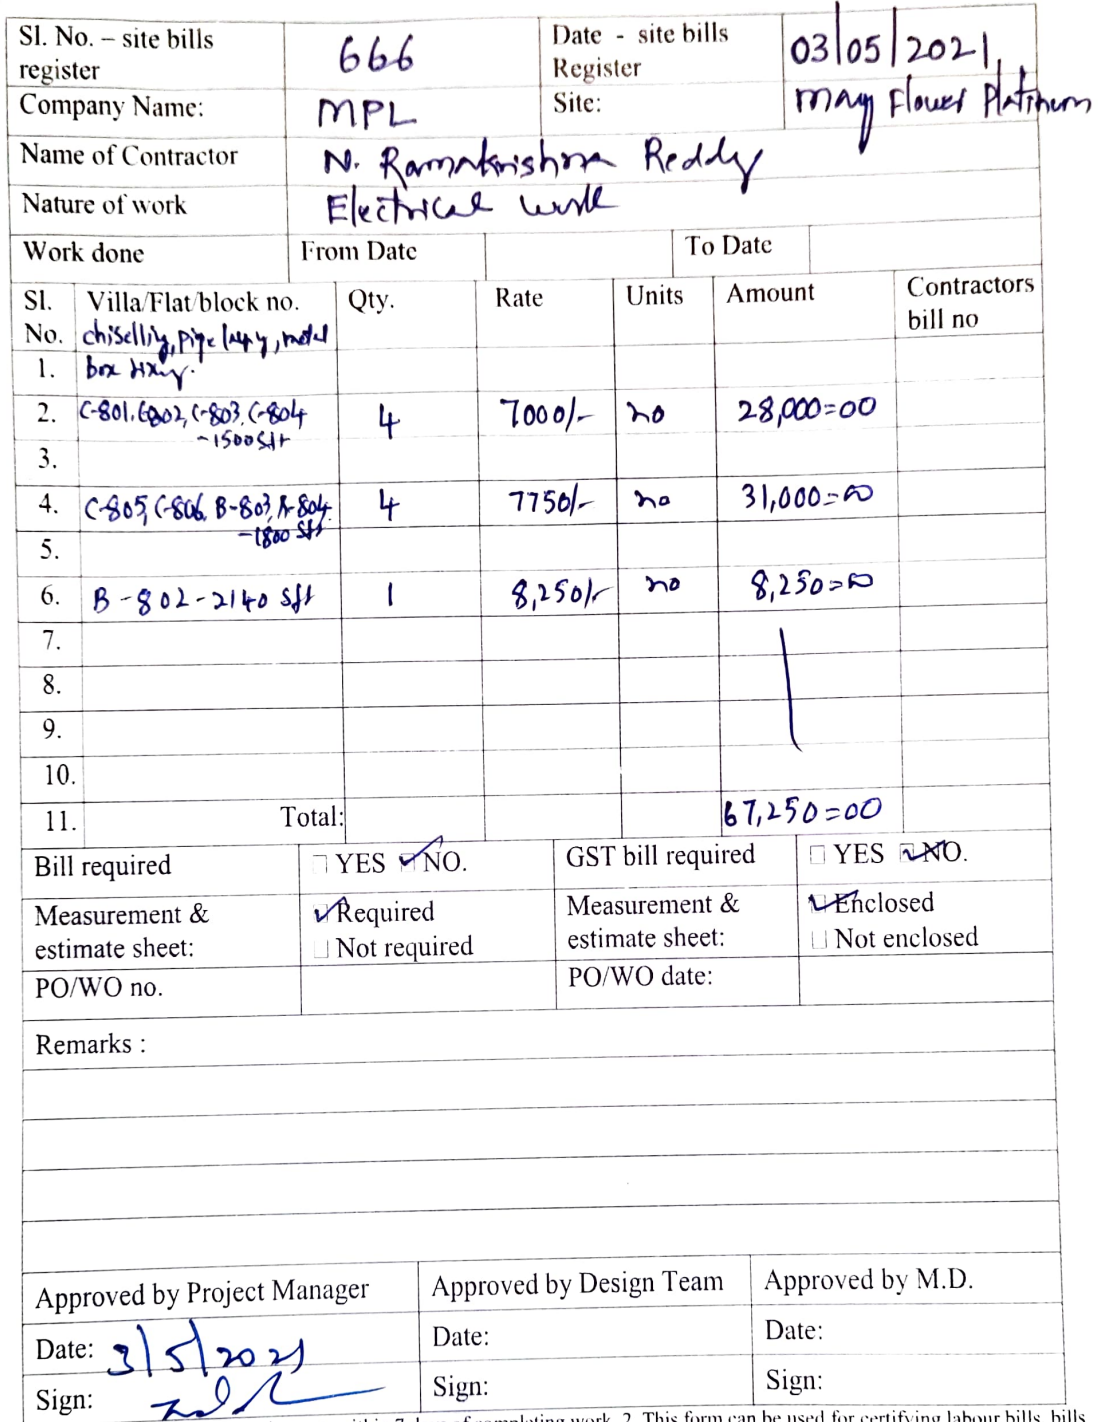 Sl. No. – site bills register 666 Date - site bills Register 03/05/2021
Company Name: MPL Site: May Flower Platinum
Name of Contractor N. Ramakrishna Reddy
Nature of work Electrical work
Work done From Date To Date
Sl. No. Villa/Flat/block no. Qty. Rate Units Amount Contractors bill no
chiselling, pipe laying, metal
1. box fixing.
2. C-801, C-802, C-803, C-804 4 7000/- no 28,000=00
-1500 Sft
3.
4. C-805, C-806, B-803, A-804 4 7750/- no 31,000=00
-1800 Sft
5.
6. B-802-2140 Sft 1 8,250/- no 8,250=00
7.
8.
9.
10.
11. Total: 67,250=00
Bill required YES NO. GST bill required YES NO.
Measurement & estimate sheet: Required Measurement & estimate sheet: Enclosed
Not required Not enclosed
PO/WO no. PO/WO date:
Remarks :
Approved by Project Manager Approved by Design Team Approved by M.D.
Date: 3/5/2021 Date: Date:
Sign: Sign: Sign:
of completing work. 2. This form can be used for certifying labour bills, bills